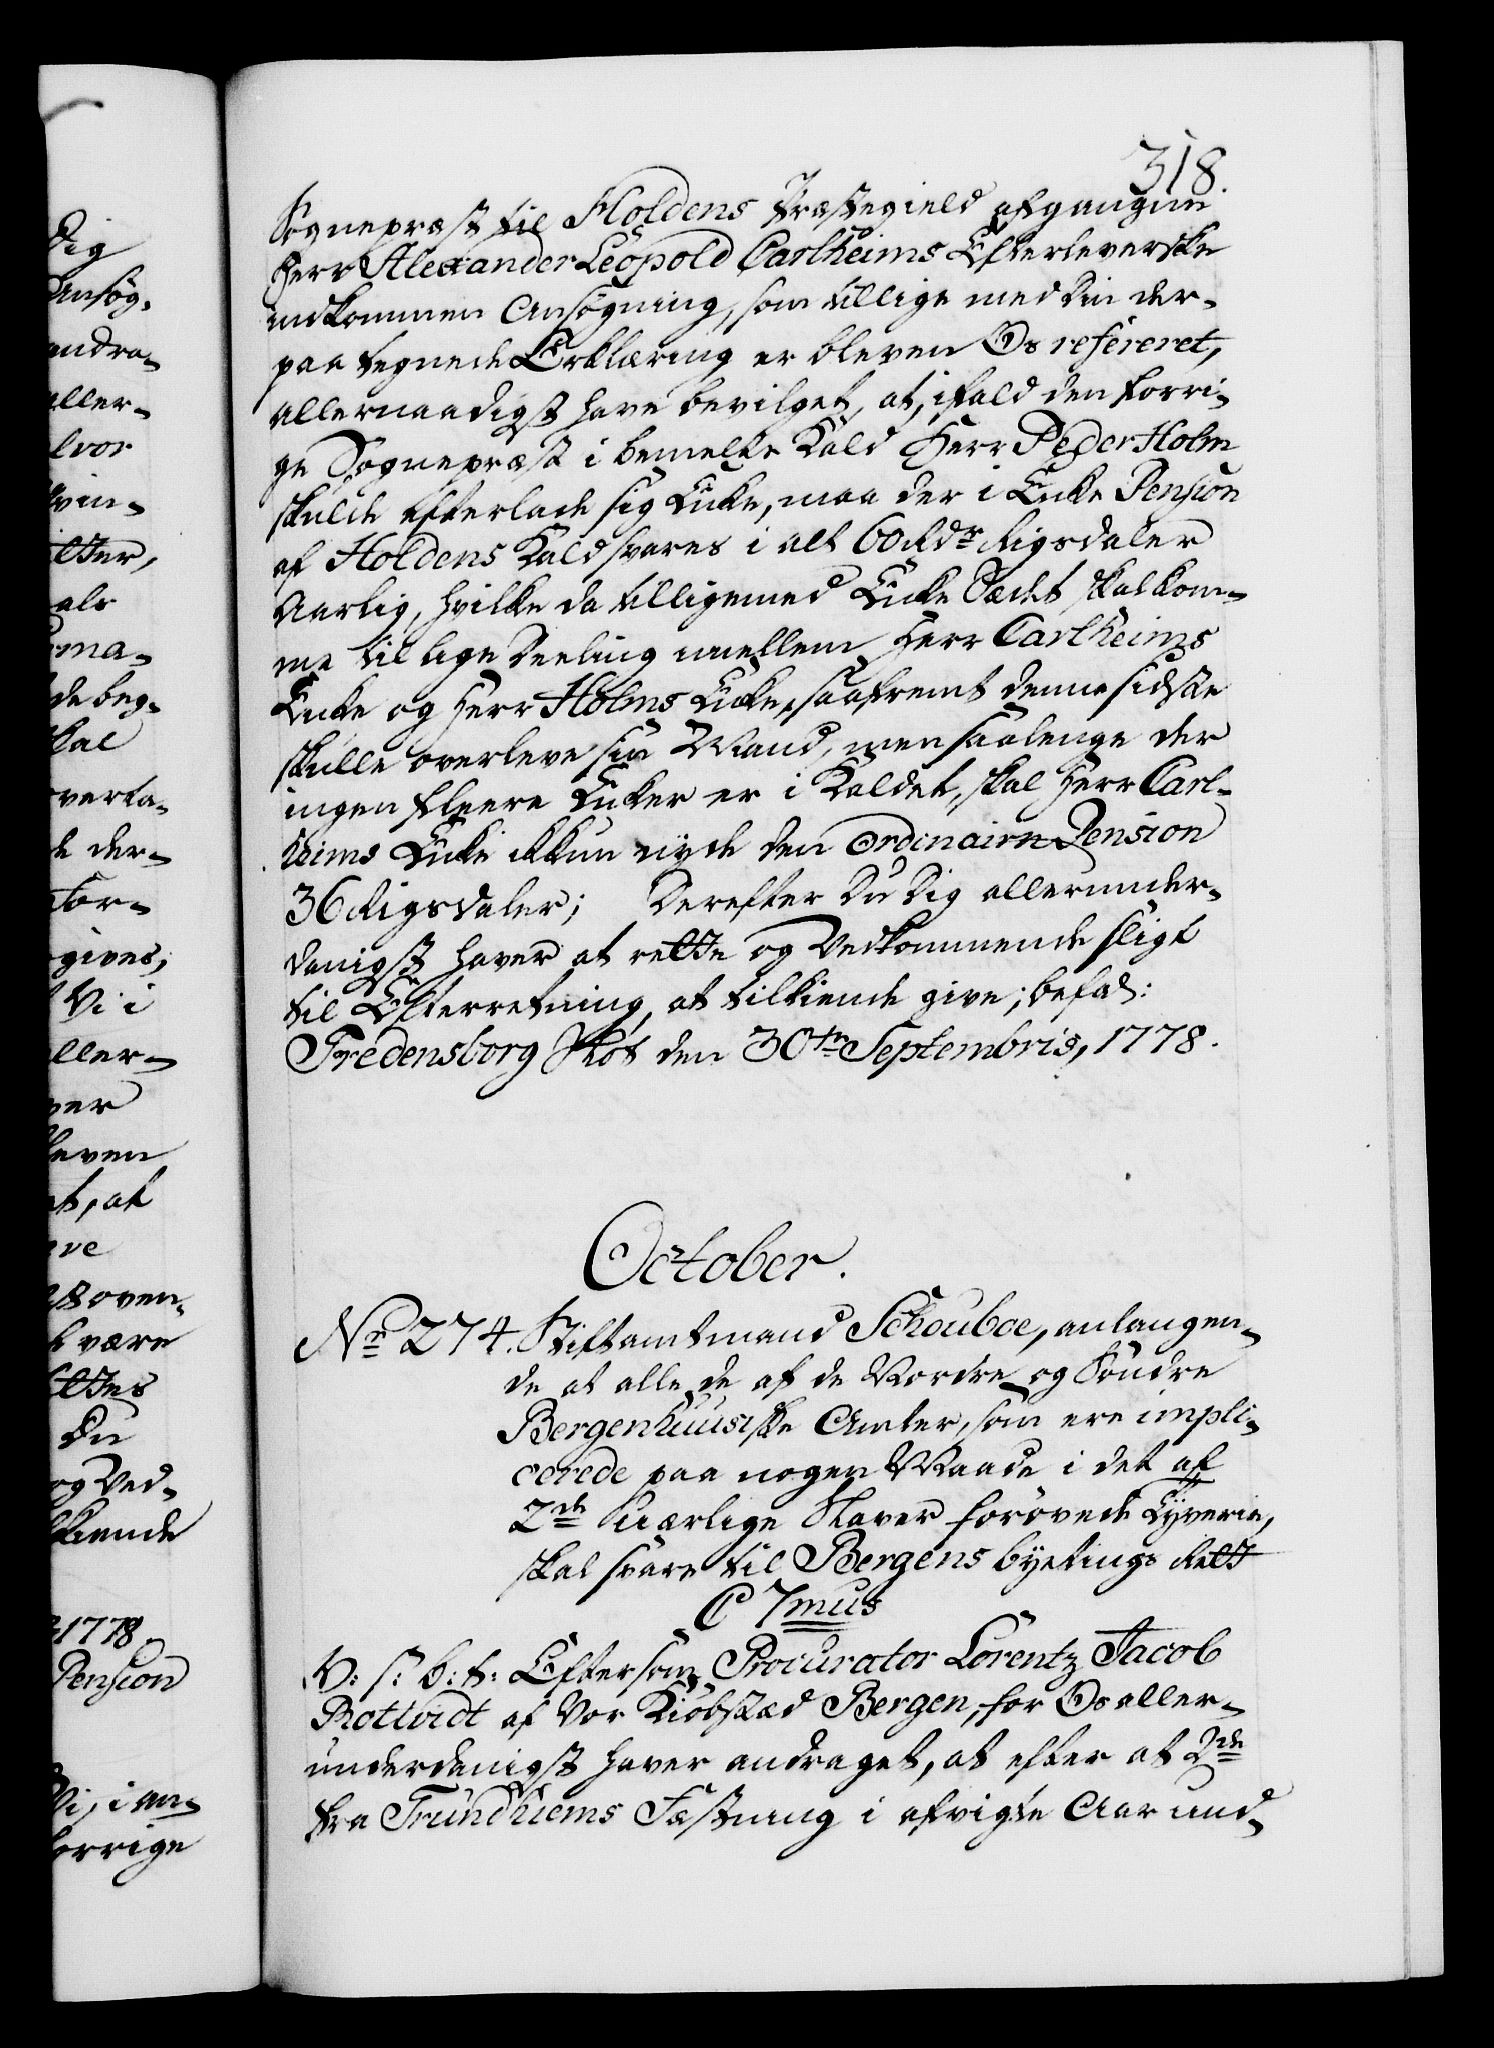 318.
Sognepræst til Holdens Præstegield afgangne
Herr Alexander Leopold Carlheims Efterleverske
indkommen Ansøgning, som tillige med Din der-
paa tegnede Erklæring er bleven Os refereret,
allernaadigst have bevilget, at, ifald den forri-
ge Sognepræst i bemelte Kald Herr Peder Holm
skulde efterlade sig Enke, maa der i Enke Pension
af Holdens Kald svares i alt 60 Rdr Rigsdaler
Aarlig, hvilke da tilligemed Enke Sædet skal kom-
me til lige Deeling imellem Herr Carlheims
Enke og Herr Holms Enke, saafremt denne sidste
skulle overleve sin Mand, men saalenge der
ingen fleere Enker er i Kaldet, skal Herr Carl-
heims Enke ikkun nyde den ordinaire Pension
36 Rigsdaler; Derefter Du Dig allerunder-
danigst haver at rette og Vedkommende sligt
til Efterretning, at tilkiende give; befal:
Fredensborg Slot den 30te Septembris, 1778.
October.
Nr 274. Stiftamtmand Schouboe, anlangen-
de at alle de af de Nordre og Søndre
Bergenhuusiske Amter, som ere impli-
cerede paa nogen Maade i det af
2de Uærlige Slaver forøvede Tyverie,
skal svare til Bergens byetings Rett
C 7mus
V: s: b: t: Eftersom Procurator Lorentz Jacob
Rottvidt af Vor Kiøbstæd Bergen, for Os aller-
underdanigst haver andraget, at efter at 2de
fra Trundhiems Fæstning i afvigte Aar und-
Dig
Ansøg-
andra-
aller-
ma-
de beg-
skal
der-
gives,
Vi i
aller-
ver
bleven
at
oven-
være
Du
og Ved-
kiende
1778
Pension
Vi, i an-
forrige